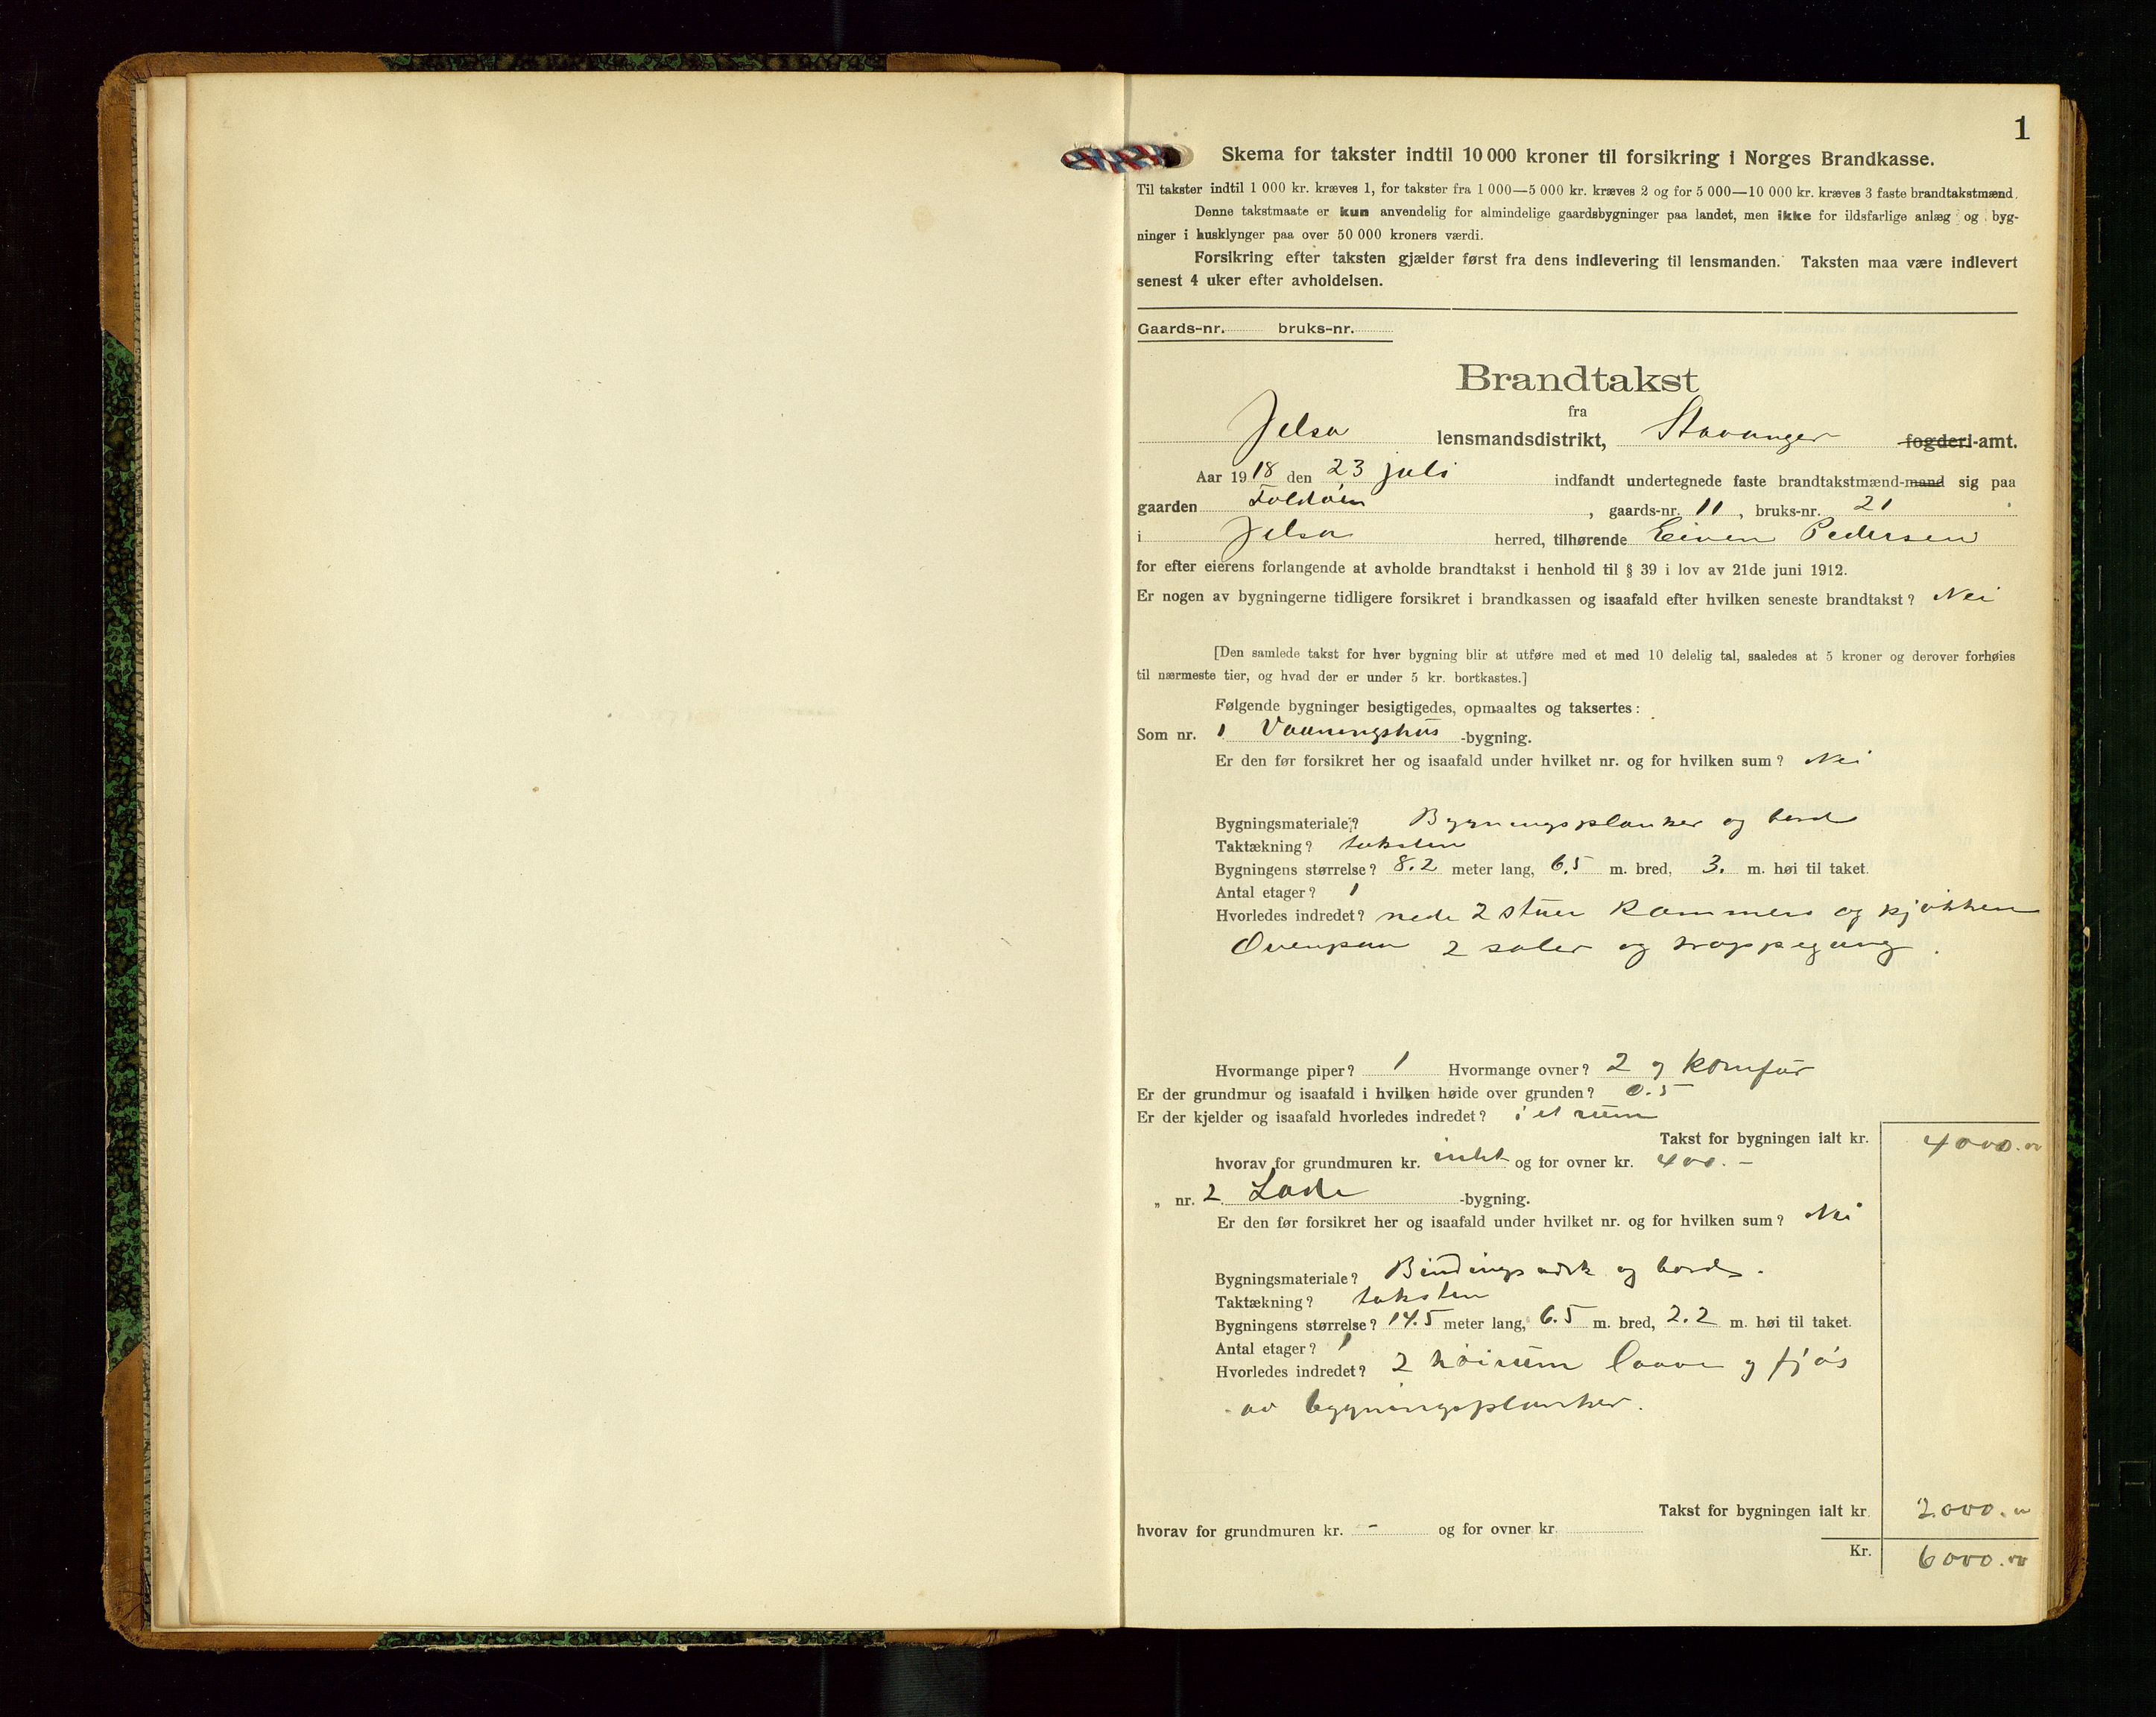 1
Skema for takster indtil 10 000 kroner til forsikring i Norges Brandkasse.
Til takster indtil 1 000 kr. kræves 1, for takster fra 1 000—5 000 kr. kræves 2 og for 5 000—10 000 kr. kræves 3 faste brandtakstmænd.
Denne takstmaate er kun anvendelig for almindelige gaardsbygninger paa landet, men ikke for ildsfarlige anlæg og byg-
ninger i husklynger paa over 50 000 kroners værdi.
Forsikring efter taksten gjælder først fra dens indlevering til lensmanden. Taksten maa være indlevert
senest 4 uker efter avholdelsen.
Gaards-nr. bruks-nr.
Brandtakst
fra
Jelsa lensmandsdistrikt, Stavanger fogderi-amt.
Aar 1918 den 23 juli indfandt undertegnede faste brandtakstmænd-mand sig paa
gaarden Foldøen, gaards-nr. 11, bruks-nr. 21
i Jelsa herred, tilhørende Eiven Pedersen
for efter eierens forlangende at avholde brandtakst i henhold til § 39 i lov av 21de juni 1912.
Er nogen av bygningerne tidligere forsikret i brandkassen og isaafald efter hvilken seneste brandtakst? Nei
[Den samlede takst for hver bygning blir at utføre med et med 10 delelig tal, saaledes at 5 kroner og derover forhøies
til nærmeste tier, og hvad der er under 5 kr. bortkastes.]
Følgende bygninger besigtigedes, opmaaltes og taksertes:
Som nr. 1 Vaaningshus -bygning.
Er den før forsikret her og isaafald under hvilket nr. og for hvilken sum? Nei
Bygningsmateriale? Bygningsplanker og bord
Taktækning? taksten
Bygningens størrelse? 8.2 meter lang, 6.5 m. bred, 3. m. høi til taket.
Antal etager? 1
Hvorledes indredet? nede 2 stuer kammers og kjøkken
Ovenpaa 2 saler og trappegang.
Hvormange piper? 1 Hvormange ovner? 2 og komfur
Er der grundmur og isaafald i hvilken høide over grunden? 0.5
Er der kjelder og isaafald hvorledes indredet? i et rum
Takst for bygningen ialt kr. 4000.00
hvorav for grundmuren kr. intet og for ovner kr. 400.—
„ nr. 2 Lade -bygning.
Er den før forsikret her og isaafald under hvilket nr. og for hvilken sum? Nei
Bygningsmateriale? Bindingsverk og bord.
Taktækning? taksten
Bygningens størrelse? 14.5 meter lang, 6.5 m. bred, 2.2 m. høi til taket.
Antal etager? 1
Hvorledes indredet? 2 høirum laave og fjøs
av bygningsplanker.
Takst for bygningen ialt kr. 2000.00
hvorav for grundmuren kr. - og for ovner kr.
Kr. 6000.00